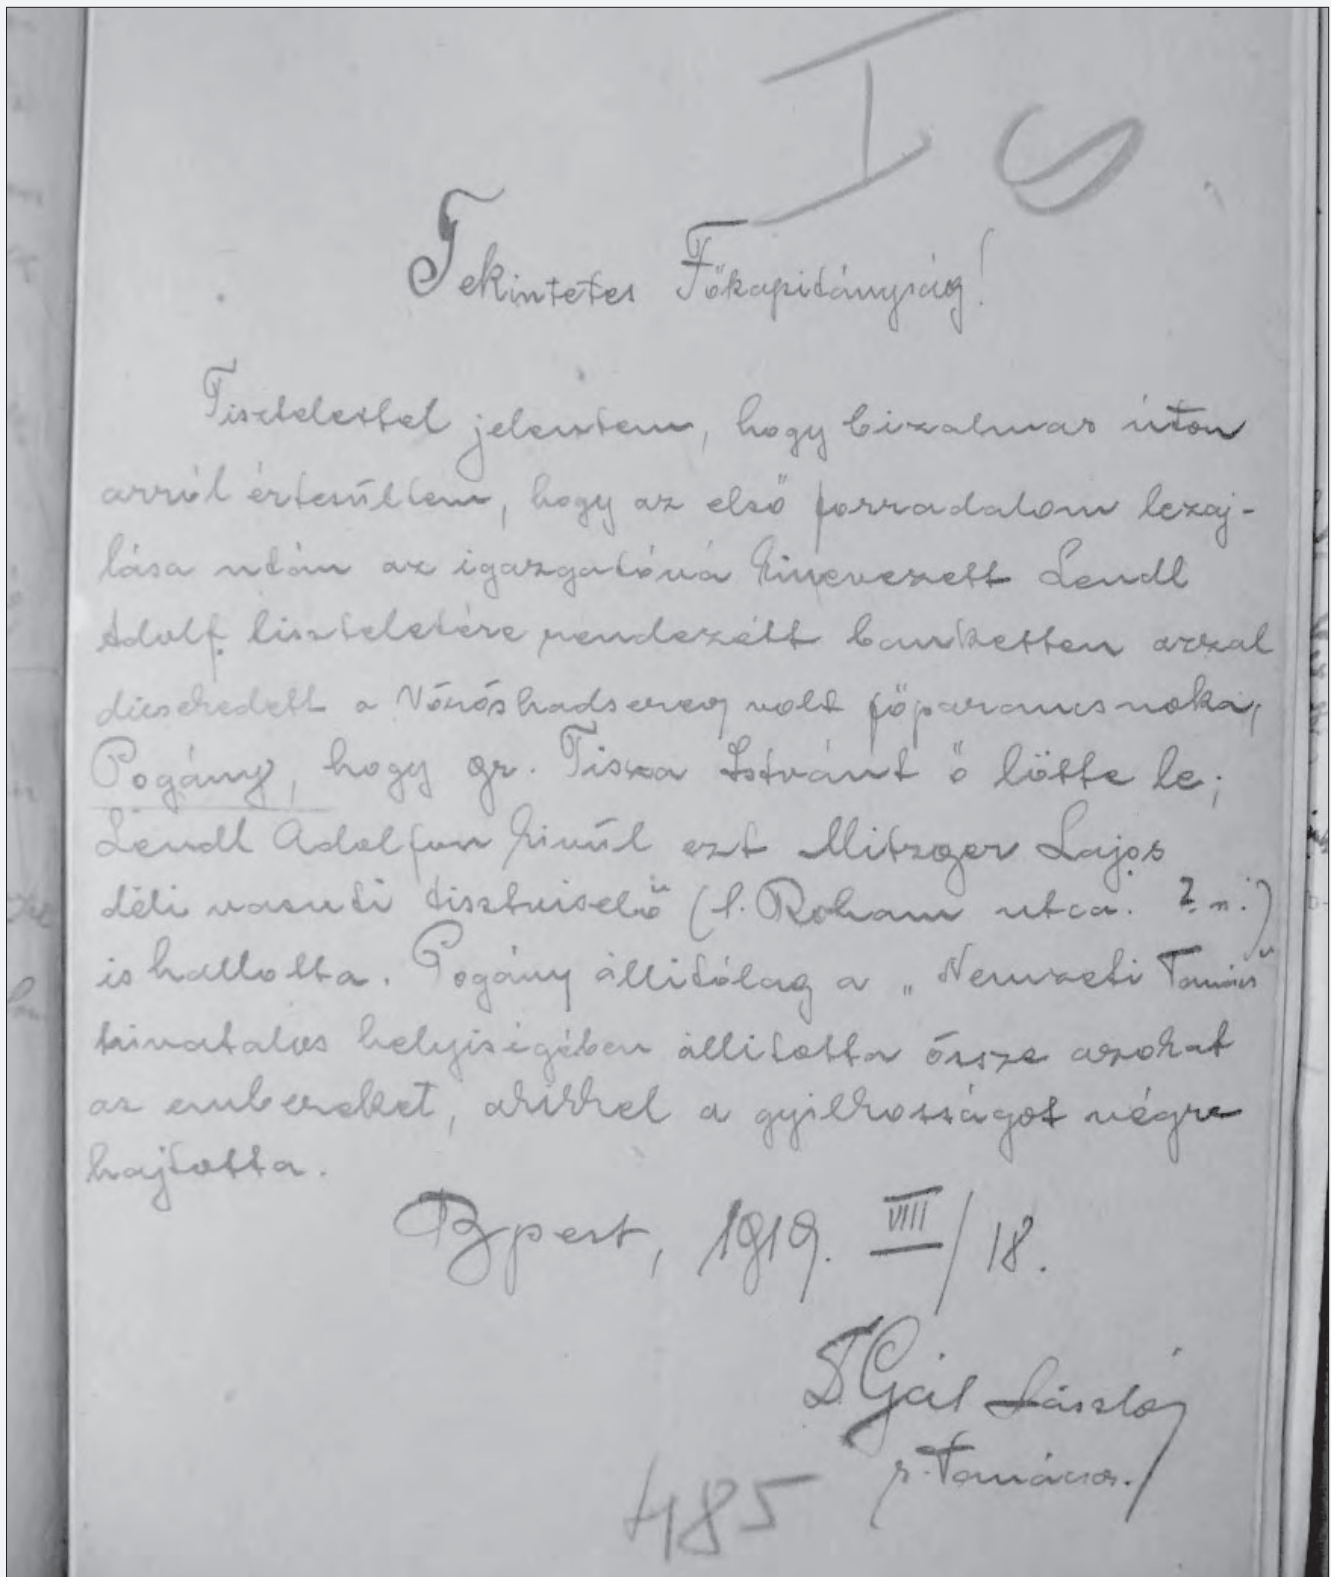 I
Tekintetes Főkapitányság!
Tisztelettel jelentem, hogy bizalmas úton
arról értesűltem, hogy az első forradalom lezaj-
lása után az igazgatóvá kinevezett Lendl
Adolf tiszteletére rendezett banketten azzal
dicsekedett a Vöröshadsereg volt főparancsnoka,
Pogány, hogy gr. Tisza Istvánt ő lőtte le;
Lendl Adolfon kivűl ezt Mitzger Lajos
déli vasuti tisztviselő (l. Roham utca. 2. n.)
is hallotta. Pogány állitólag a „Nemzeti Tanács"
hivatalos helyiségében állitotta össze azokat
az embereket, akikkel a gyilkosságot végre
hajtotta.
Bpest, 1919. VIII/18.
Dr Gál László
r. tanácsos.
485